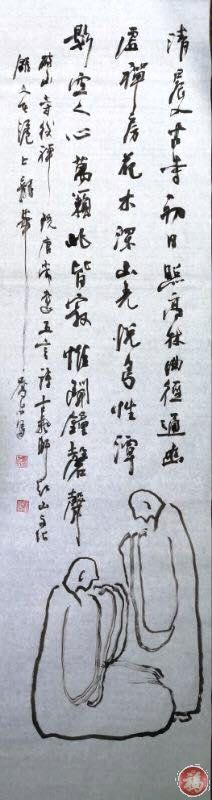 清晨入古寺初日照高林曲徑通幽
處禪房花木深山光悅鳥性潭
影空人心萬籟此皆寂惟聞鐘磬聲
破山寺後禪院唐常建五言詩
滬上龍華